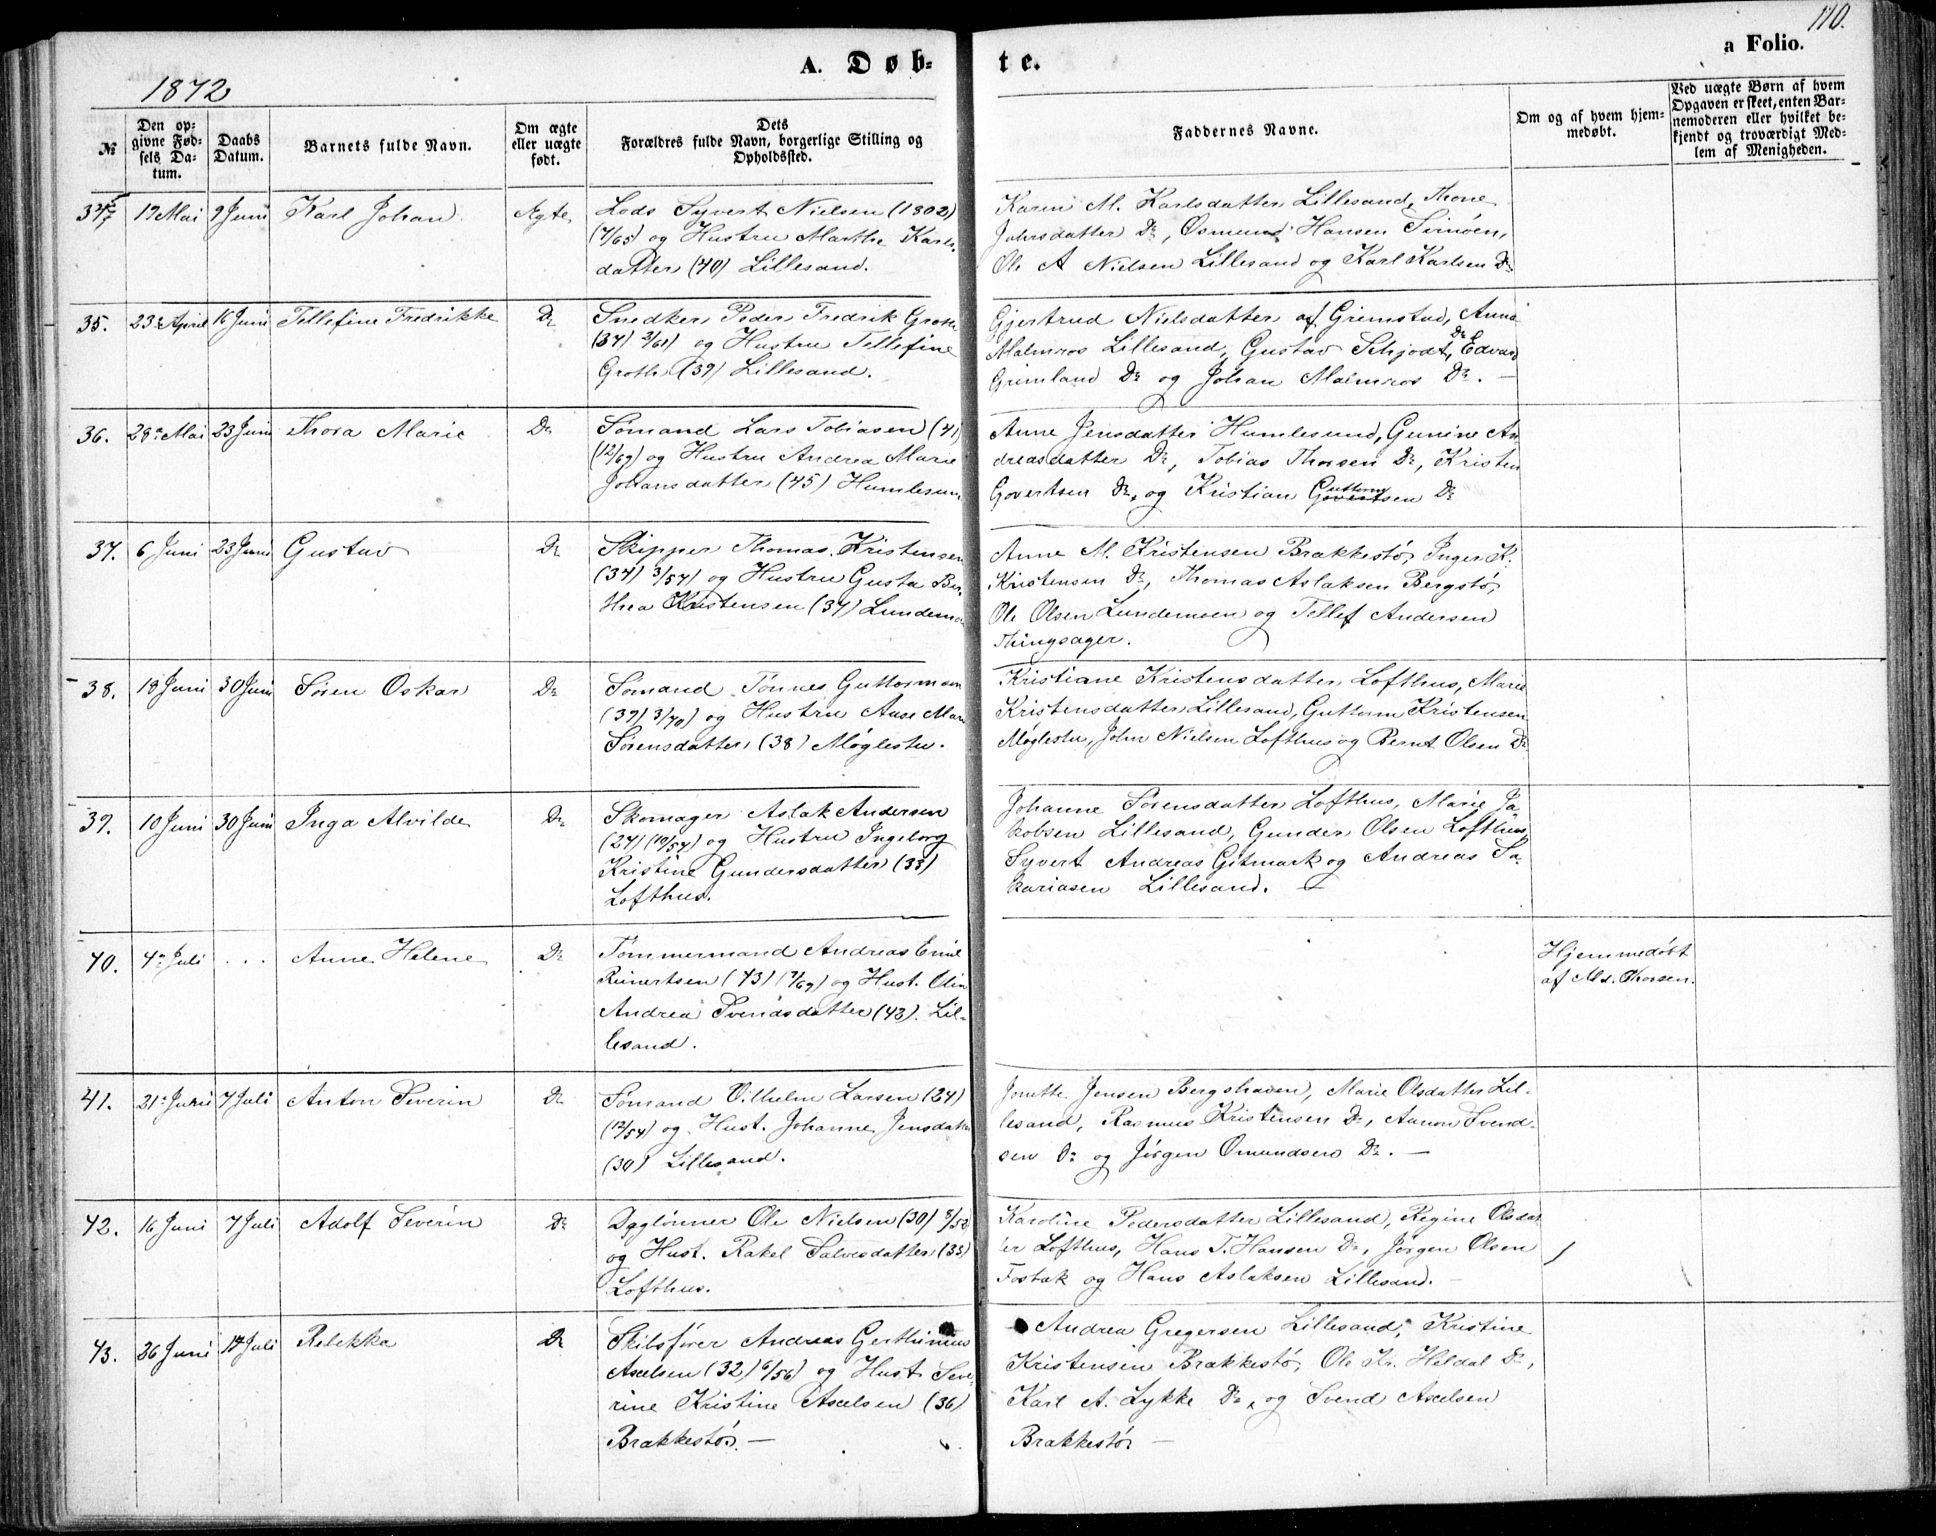 110.
A. Døb-
te.
a Folio.
1872
№
Den op-
givne Fød-
sels Da-
tum.
Daabs
Datum.
Barnets fulde Navn.
Om ægte
eller uægte
født.
Dets
Forældres fulde Navn, borgerlige Stilling og
Opholdssted.
Faddernes Navne.
Om og af hvem hjem-
medøbt.
Ved uægte Børn af hvem
Opgaven er skeet, enten Bar-
nemoderen eller hvilket be-
kjendt og troværdigt Med-
lem af Menigheden.
34 19 Mai 9 Juni Karl Johan Ægte
Lods Syvert Nielsen (1802)
(7/65) og Hustru Marthe Karls-
datter (40) Lillesand.
Karen M. Karlsdatter Lillesand, Thone
Johrsdatter Do, Osmund Hansen
Ole A Nielsen Lillesand og Karl Karlsen Do
35. 23 April 16 Juni Tellefine Fredrikke Do
Snedker Peder Fredrik Groth
(34) 3/61) og Hustru Tellefine
Groth (39) Lillesand.
Gjertrud Nielsdatter af Grimstad, Anna
Malmros Lillesand, Gustav Schjødt Do, Edvard
Grimland Do og Johan Malmros Do. —
36. 28 Mai 23 Juni Thora Marie Do
Sømand Lars Tobiasen (41)
(12/69) og Hustru Andrea Marie
Johansdatter (45) Humlesund
Anne Jensdatter Humlesund, Gunine An
dreasdatter Do, Tobias Thorsen Do, Kristen
Govertsen Do, og Kristian Guttormsen Do
37. 6 Juni 23 Juni Gustav Do
Skipper Thomas Kristensen
(34) 3/54) og Hustru Gusta Ber-
thea Kristensen (34) Lundemo
Anne M. Kristensen Brækkestø, Inger K.
Kristensen Do, Thomas Aslaksen Bergstø,
Ole Olsen Lundemoen og Tellef Andersen
Thingsager.
38. 18 Juni 30 Juni Søren Oskar Do
Sømand Tønnes Guttormsen
(39) 3/70) og Hustru Aase Marie
Sørensdatter (38) Møglestu.
Kristiane Kristensdatter Lofthus, Marie
Kristensdatter Lillesand, Guttorm Kristensen
Møglestu, John Nielsen Lofthus og Bernt Olsen Do
39. 10 Juni 30 Juni Inga Alvilde Do
Skomager Aslak Andersen
(24) (10/54) og Hustru Ingeborg
Kristine Gundersdatter (33)
Lofthus.
Johanne Sørensdatter Lofthus, Marie Ja
kobsen Lillesand, Gunder Olsen Lofthus,
Syvert Andreas Gitmark og Andreas Sa-
kariasen Lillesand. —
40. 4 Juli . . . Anne Helene Do
Tømmermand Andreas Emil
Reinertsen (43) (7/69) og Hust. Olin
Andrea Svendsdatter (43). Lil-
lesand.
Hjemmedøbt
af Md. Thorsen.
41. 21 Juni 7 Juli Anton Severin Do
Sømand Vilhelm Larsen (24)
(12/54) og Hust. Johanne Jensdatter
(30) Lillesand.
Jonette Jensen Bergshaven, Marie Olsdatter Lil-
lesand, Rasmus Kristensen Do, Aanon Svend-
sen Do og Jørgen Omundsen Do. —
42. 16 Juni 7 Juli Adolf Severin Do
Dgglønner Ole Nielsen (30) 8/52
og Hust. Rakel Salvesdatter (33)
Lofthus.
Karoline Pedersdatter Lillesand, Regine Olsdat
er Lofthus, Hans T. Hansen Do, Jørgen Olsen
Fosbæk og Hans Aslaksen Lillesand. —
43. 26 Juni 14 Juli Rebekka Do
Skibsfører Andreas Gerthinius
Axelsen (32) 6/56) og Hust Seve-
rine Kristine Axelsen (36)
Brækkestø. —
Andrea Gregersen Lillesand, Kristine
Kristensen Brækkestø, Ole Kr. Heldal Do,
Karl A. Lykke Do, og Svend Axelsen
Brækkestø —